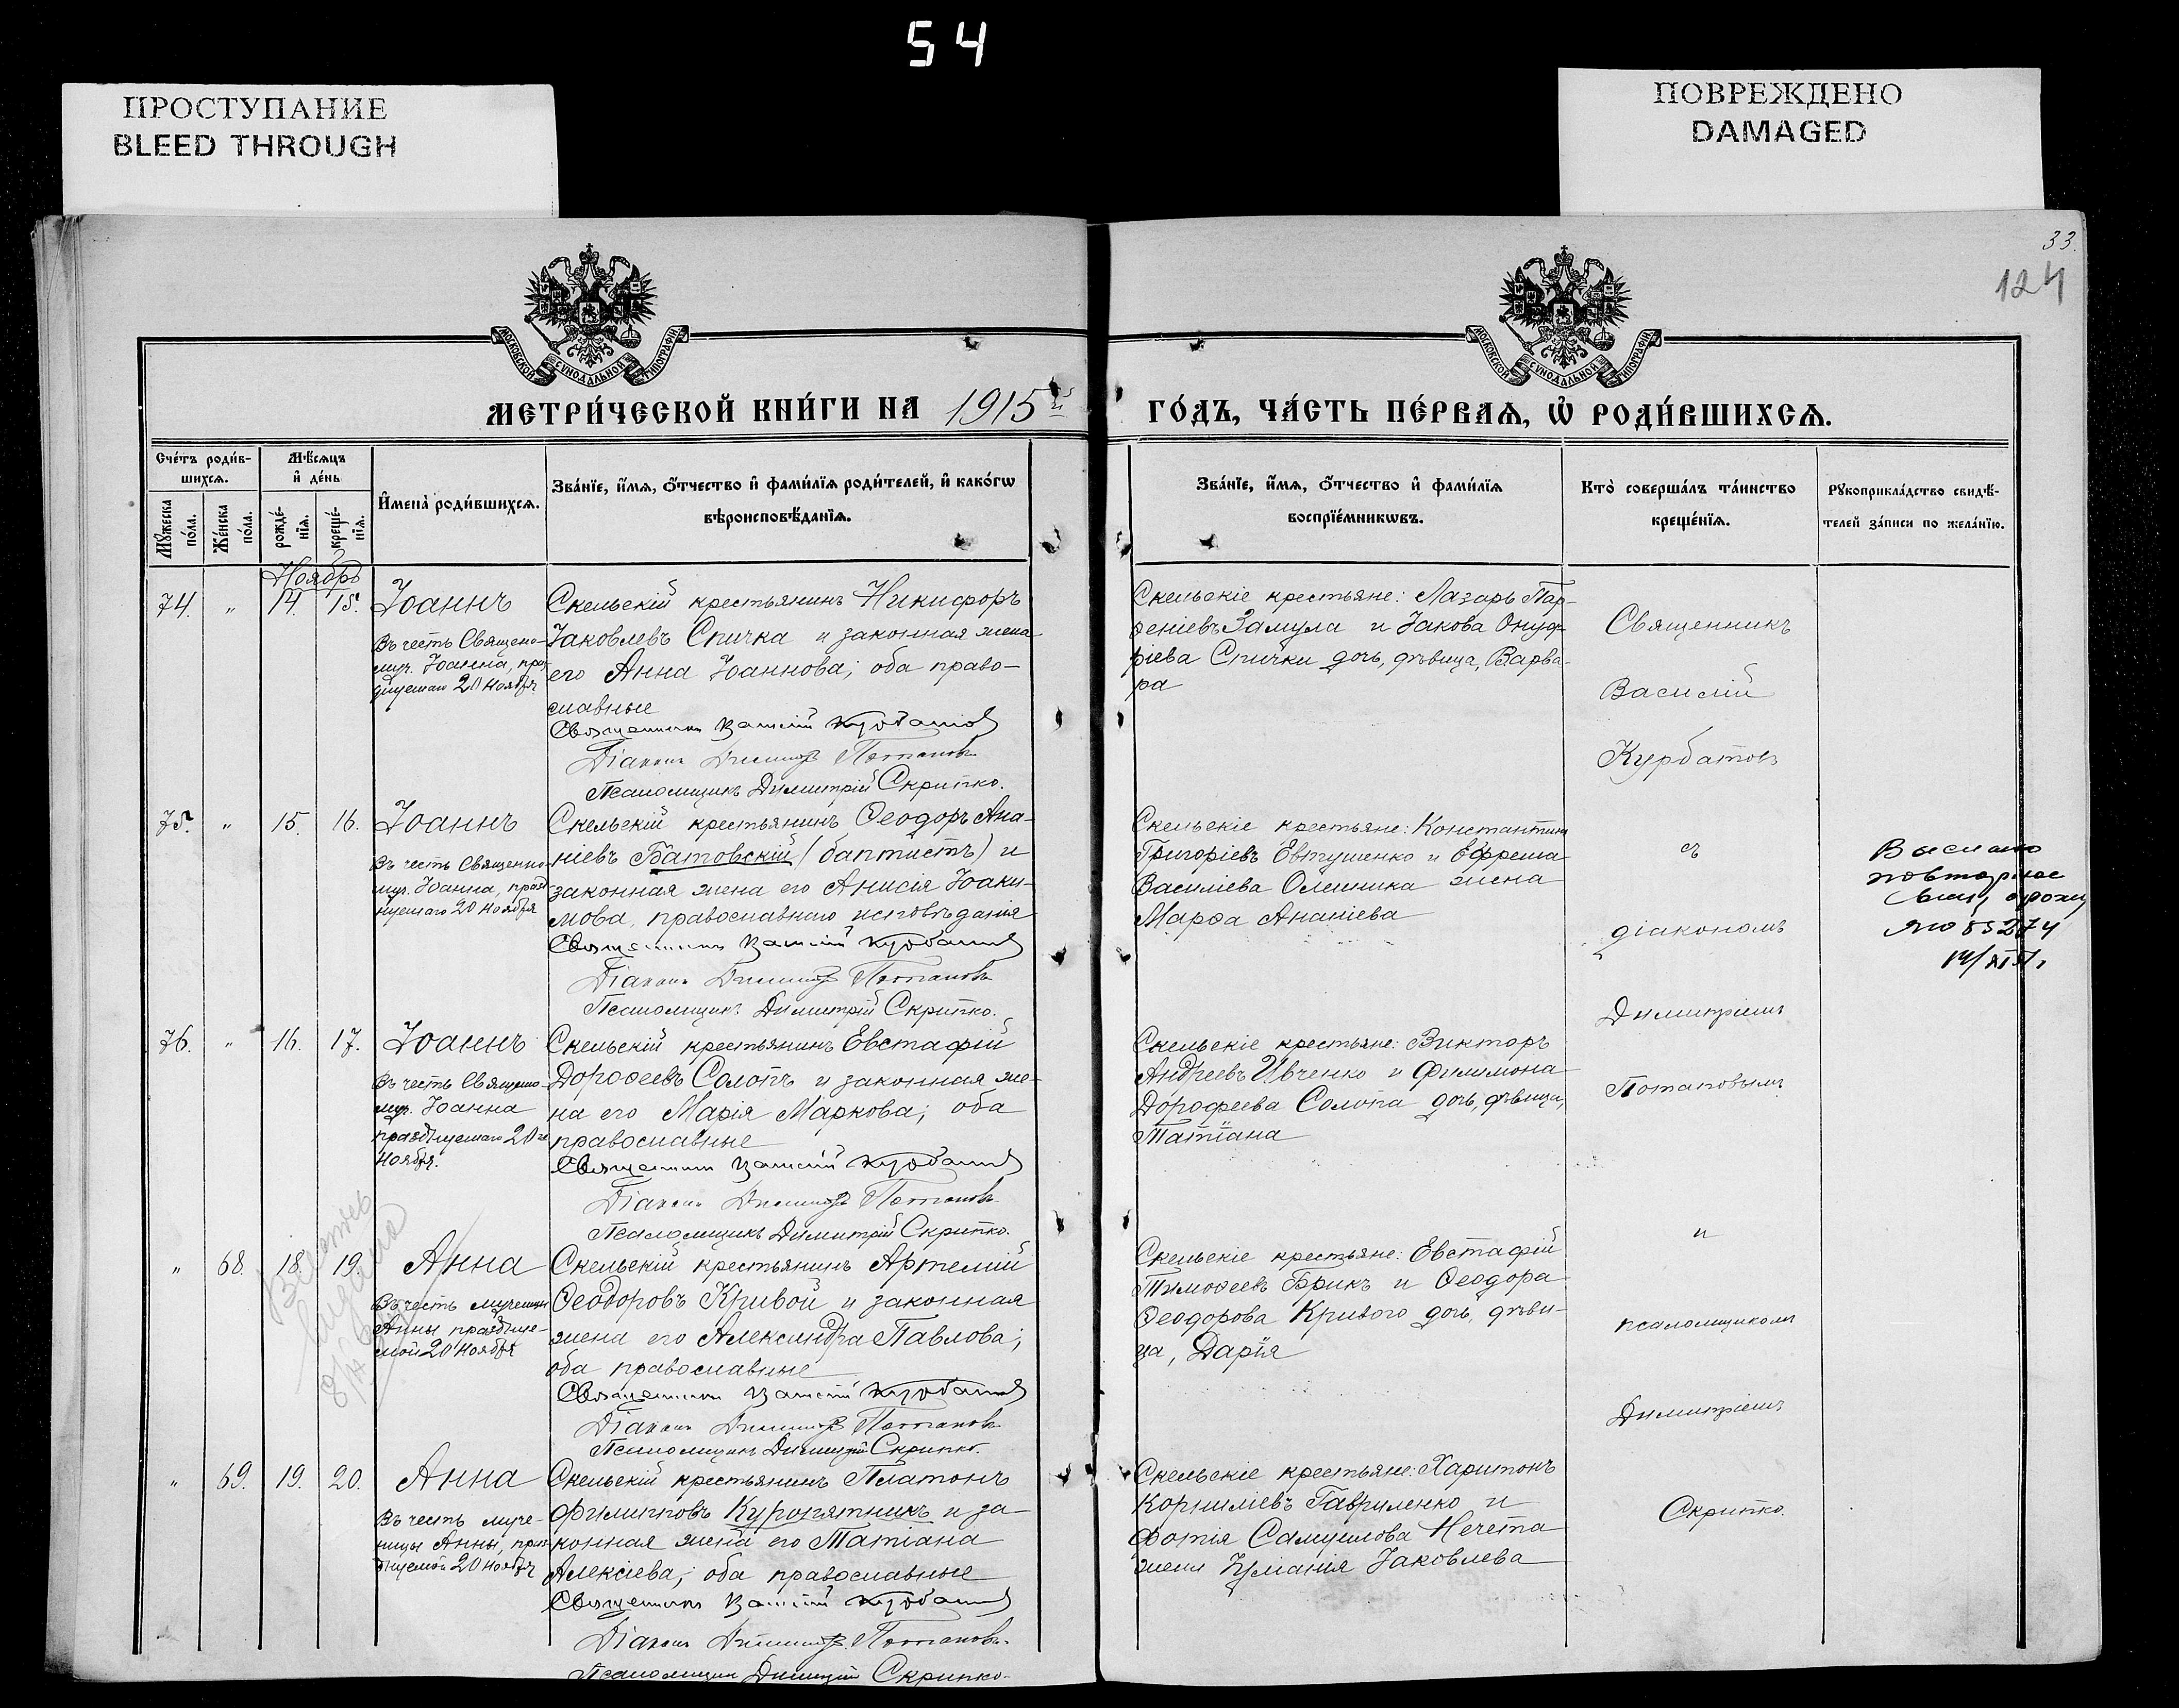 54
ПРОСТУПАНИЕ
BLEED THROUGH
ПОВРЕЖДЕНО
DAMAGED
33.
124
МОСКОВСКОЙ СѴНОДАЛЬНОЙ ТИПОГРАФІИ
МОСКОВСКОЙ СѴНОДАЛЬНОЙ ТИПОГРАФІИ
МЕТРИ́ЧЕСКОЙ КНИ́ГИ НА 1915й
ГО́ДЪ, ЧА́СТЬ ПЕ́РВАѦ, Ѽ РОДИ́ВШИХСѦ.
Сче́тъ роди́в-
шихсѧ.
Мѣ́сѧцъ
и҆ де́нь
Мꙋ́жеска
по́ла.
Же́нска
по́ла.
рожде́-
нїѧ.
креще́-
нїѧ.
И҆мена̀ роди́вшихсѧ.
Зва́нїе, и҆́мѧ, ѻ҆́тчество и҆ фами́лїѧ роди́телей, и҆ како́гѡ
вѣроисповѣ́данїѧ.
Зва́нїе, и҆́мѧ, ѻ҆́тчество и҆ фами́лїѧ
воспрїе́мникѡвъ.
Кто̀ соверша́лъ та́инство
креще́нїѧ.
Рꙋкоприкла́дство свидѣ́-
телей за́писи по жела́нїю.
Ноябрь
74. " 14. 15. Іоаннъ
Въ честь Священо-
муч. Іоанна, праз-
днуемаго 20 Ноября
Скельскій крестьянинъ Никифоръ
Іаковлевъ Спичка и законная жена
его Анна Іоаннова; оба право-
славные
Священникъ Василій Курбатовъ
Діаконъ Димитрій Потаповъ
Псаломщикъ Димитрій Скрипко.
Скельскіе крестьяне: Лазарь Пар-
ѳеніевъ Замула и Іакова Онуф-
ріева Спички дочь, дѣвица, Варва-
ра
75. " 15. 16. Іоаннъ
Въ честь Священно-
муч. Іоанна, празд-
нуемаго 20 Ноября
Скельскій крестьянинъ Ѳеодоръ Ана-
ніевъ Батовскій (баптистъ) и
законная жена его Анисія Іоаки-
мова, православнаго исповѣданія
Священникъ Василій Курбатовъ
Діаконъ Димитрій Потаповъ
Псаломщикъ Димитрій Скрипко.
Скельскіе крестьяне: Константинъ
Григоріевъ Евтушенко и Ефрема
Василіева Олейника жена
Марѳа Ананіева
76. " 16. 17. Іоаннъ
Въ честь Священо-
муч. Іоанна
празднуемаго 20го
Ноября.
Скельскій крестьянинъ Евстафій
Дороѳеевъ Солопъ и законная же-
на его Марія Маркова; оба
православные
Священникъ Василій Курбатовъ
Діаконъ Димитрій Потаповъ
Псаломщикъ Димитрій Скрипко.
Скельскіе крестьяне: Викторъ
Андреевъ Ивченко и Филимона
Дорофеева Солопа дочь, дѣвица,
Татіана
" 68. 18. 19. Анна
Въ честь мученицы
Анны празднуе-
мой 20 Ноября
Скельскій крестьянинъ Артемій
Ѳеодоровъ Кривой и законная
жена его Александра Павлова;
оба православные
Священникъ Василій Курбатовъ
Діаконъ Димитрій Потаповъ
Псаломщикъ Димитрій Скрипко.
Скельскіе крестьяне: Евстафій
Тимоѳеевъ Брикъ и Ѳеодора
Ѳеодорова Кривого дочь, дѣви-
ца, Дарія
" 69. 19. 20. Анна
Въ честь муче-
ницы Анны, праз-
днуемой 20 Ноября
Скельскій крестьянинъ Платонъ
Филипповъ Куропятникъ и за-
конная жена его Татіана
Алексіева; оба православные
Священникъ Василій Курбатовъ
Діаконъ Димитрій Потаповъ
Псаломщикъ Димитрій Скрипко.
Скельскіе крестьяне: Харитонъ
Корниліевъ Гавриленко и
Фотія Самуилова Нечета
жена Іуліанія Іаковлева
Священникъ
Василій
Курбатовъ
съ
діакономъ
Димитріемъ
Потаповымъ
и
псаломщикомъ
Димитріемъ
Скрипко.
Выслано
повторное